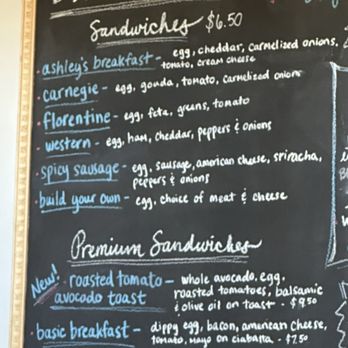 Sandwiches $6.50
ashley's breakfast - egg, cheddar, carmelised onions,
tomato, cream cheese
carnegie - egg, gouda, tomato, carmelised onion
florentine - egg, feta, greens, tomato
western - egg, ham, cheddar, peppers & onions
spicy sausage - egg, sausage, american cheese, sriracha,
peppers & onions
build your own - egg, choice of meat & cheese
Premium Sandwiches
New! roasted tomato - whole avocado, egg,
avocado toast roasted tomatoes, balsamic
& olive oil on toast - $9.50
basic breakfast - dippy egg, bacon, american cheese,
tomato, mayo on ciabatta - $7.50